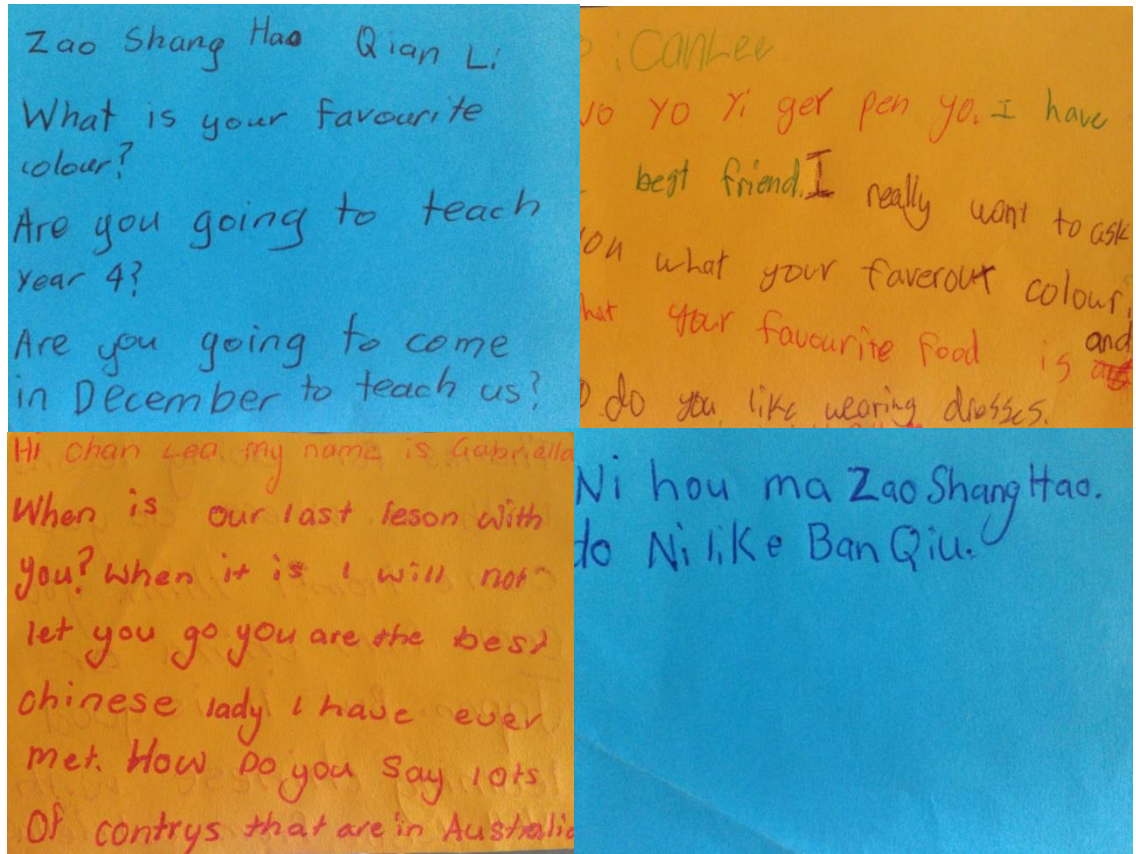 Zao Shang Hao Qian Li
What is your favourite
colour?
Are you going to teach
year 4?
Are you going to come
in December to teach us?
iCanLee
Yo Yi ger pen yo. I have
best friend. I really want to ask
what your faverout colour,
your favourite food is and
do you like wearing dresses.
Hi chan Lea my name is Gabriella
When is our last leson with
you? When it is I will not
let you go you are the best
chinese lady I have ever
met. How Do you say lots
Of contrys that are in Australia
Ni hou ma Zao Shang Hao.
do Ni like Ban Qiu.